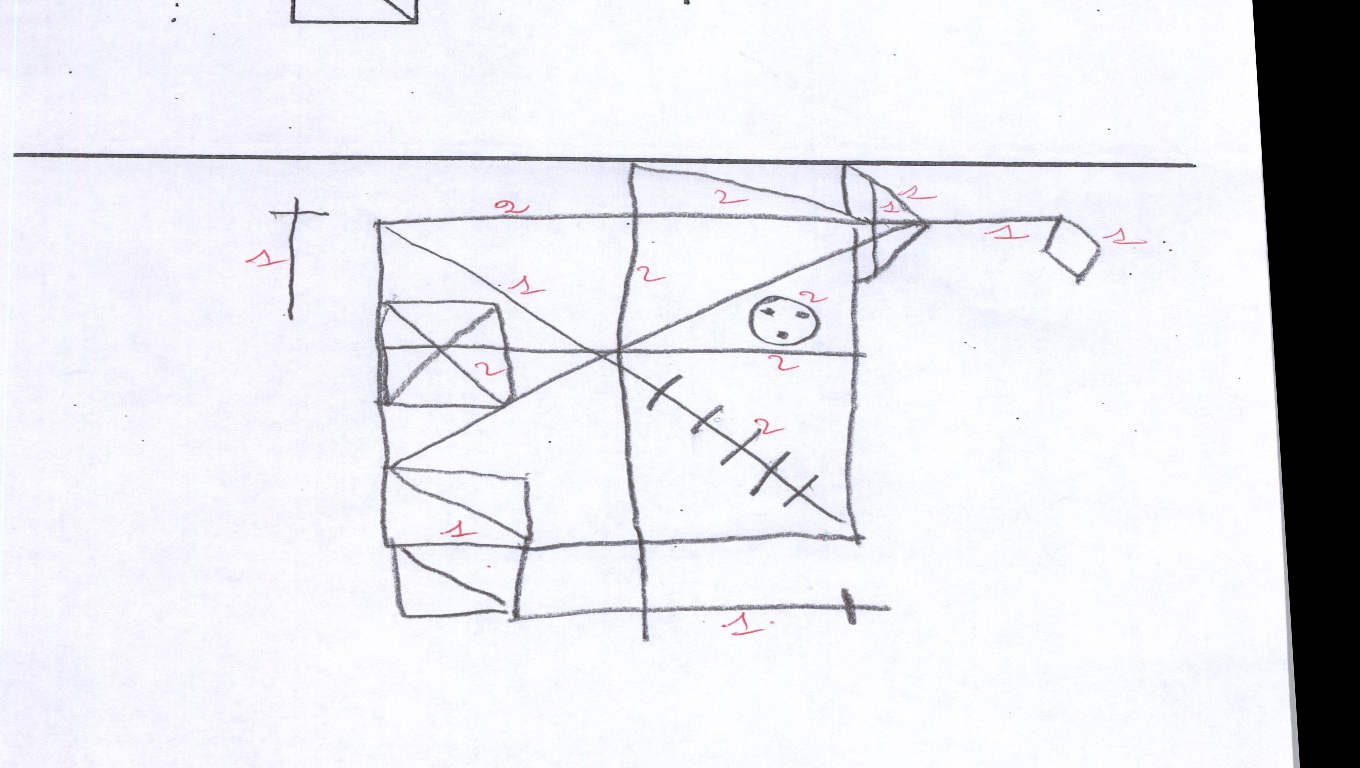 2
2
1
1
1
1
1
2
1
2
2
2
2
1
1